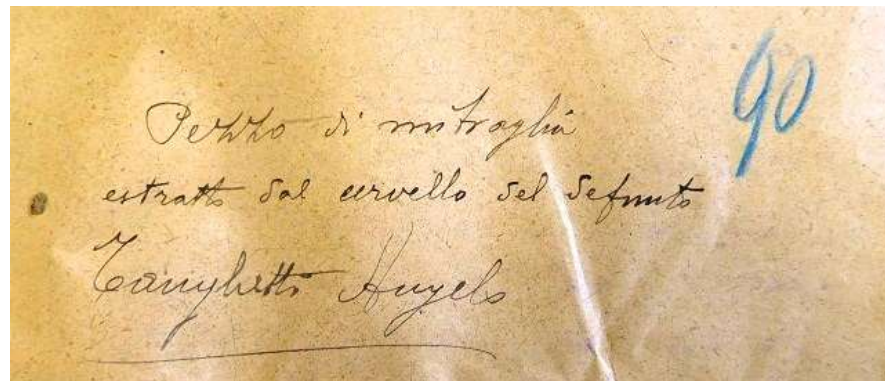 90
Pezzo di mitraglia
estratto dal cervello del defunto
Angelo